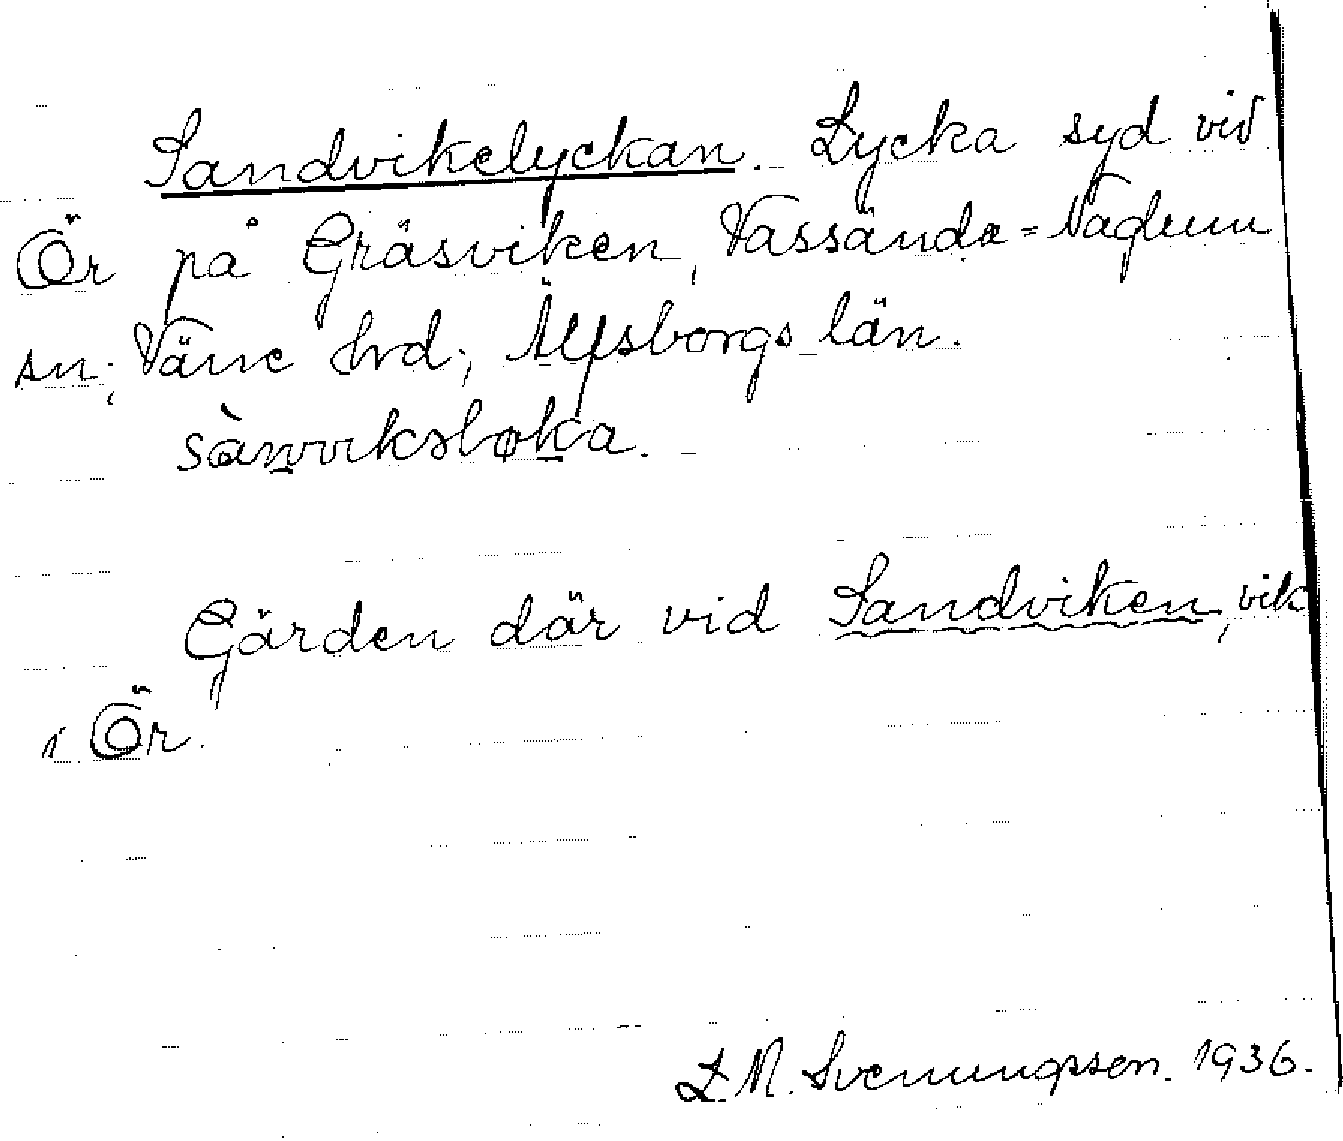 Sandvikelyckan. Lycka syd vid
Ör på Gräsviken, Vassända-Naglum
sn; Väne hrd; Älfsborgs län.
Gärden där vid Sandviken, vik
i Ör.
Svenungsson. 1936.